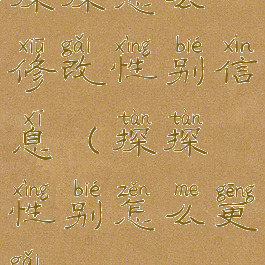 xiū gǎi xìng bié xìn
修改性别信
xī tàn tàn
息（探探
xìng bié zěn me gēng
性别怎么更
gǎi